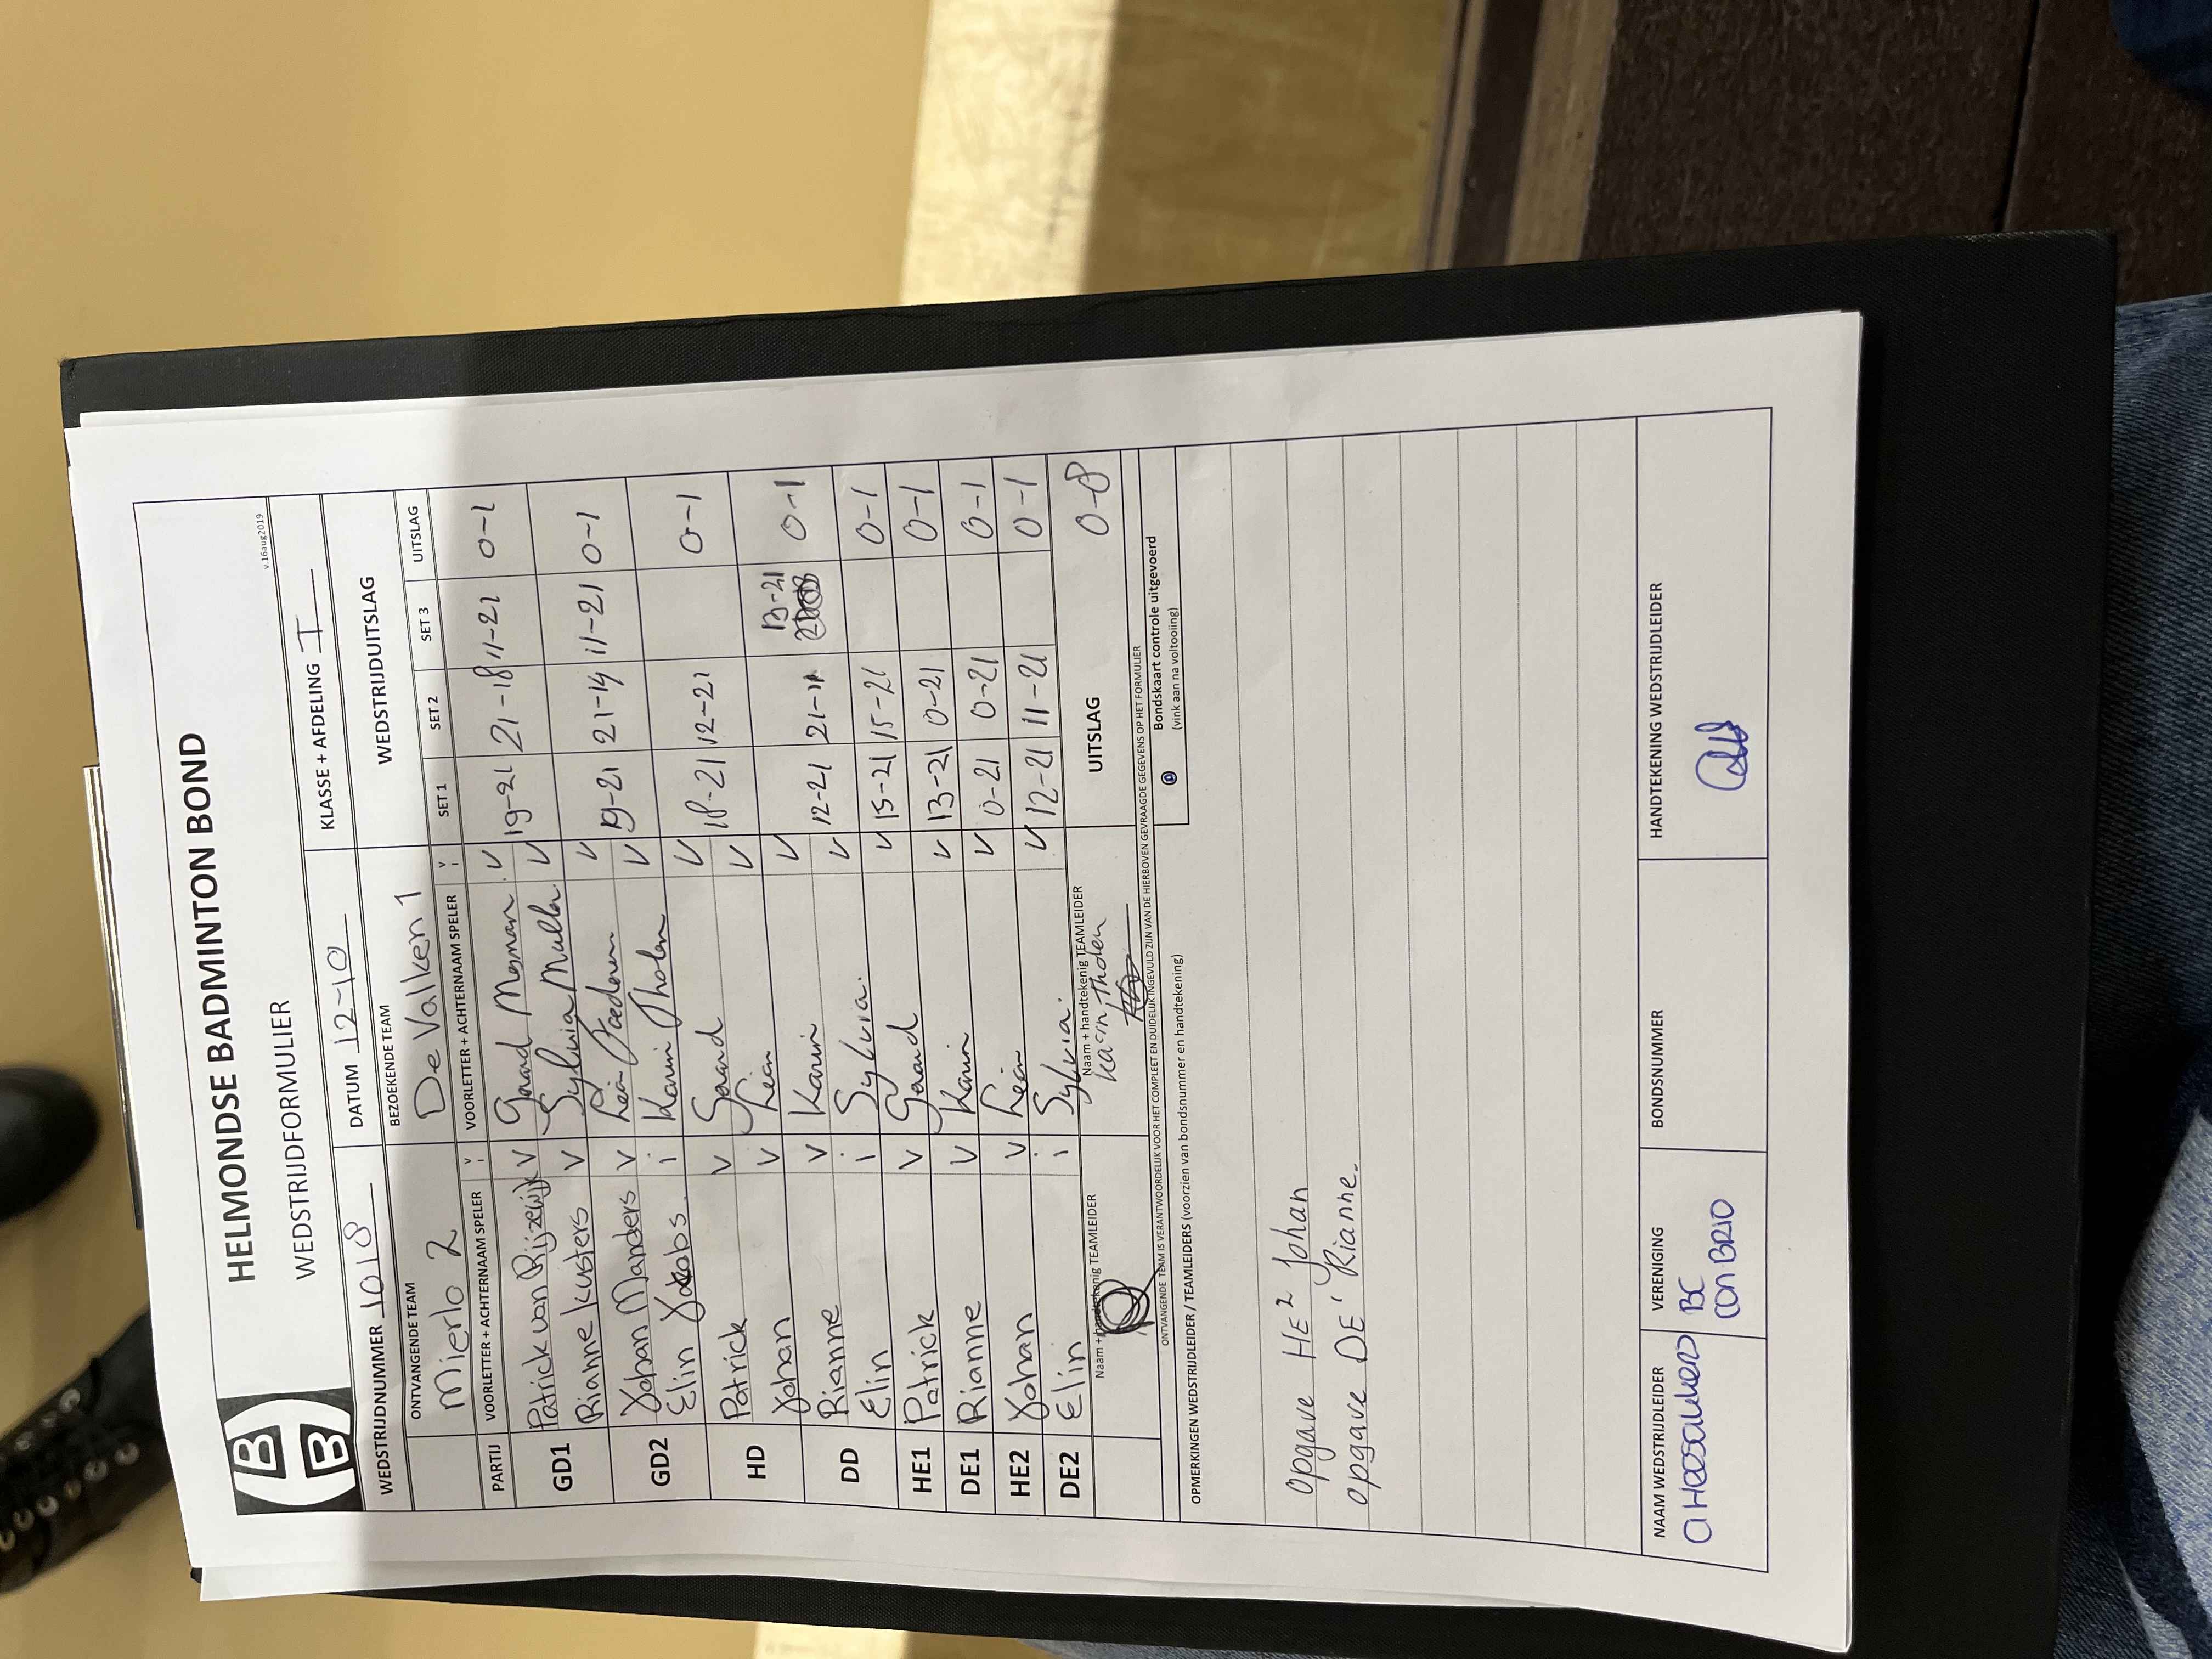 HELMONDSE BADMINTON BOND
WEDSTRIJDFORMULIER
v.16aug2019
B
B
WEDSTRIJDNUMMER 1018 DATUM 12-10 KLASSE + AFDELING I
ONTVANGENDE TEAM BEZOEKENDE TEAM WEDSTRIJDUITSLAG
Mierlo 2 De Valken 1
PARTIJ VOORLETTER + ACHTERNAAM SPELER V i VOORLETTER + ACHTERNAAM SPELER V i SET 1 SET 2 SET 3 UITSLAG
GD1 Patrick van Rijzewijk V Gerard V 19-21 21-18 11-21 0-1
Rianne Kusters V Sylvia Muller V
GD2 Johan Manders V Lein V 19-21 21-14 11-21 0-1
Elin Jacobs i Karin Tholen V
HD Patrick V Gerard V 18-21 12-21 0-1
Johan V Lein V
DD Rianne V Karin V 12-21 21-11 13-21 0-1
Elin i Sylvia. V
HE1 Patrick V Gerard V 15-21 15-21 0-1
DE1 Rianne V Karin V 13-21 0-21 0-1
HE2 Johan V Lein V 0-21 0-21 0-1
DE2 Elin i Sylvia. V 12-21 11-21 0-1
Naam + handtekenig TEAMLEIDER Naam + handtekenig TEAMLEIDER UITSLAG 0-8
Karin Tholen
ONTVANGENDE TEAM IS VERANTWOORDELIJK VOOR HET COMPLEET EN DUIDELIJK INGEVULD ZIJN VAN DE HIERBOVEN GEVRAAGDE GEGEVENS OP HET FORMULIER
OPMERKINGEN WEDSTRIJDLEIDER / TEAMLEIDERS (voorzien van bondsnummer en handtekening)
Bondskaart controle uitgevoerd
(vink aan na voltooiing)
opgave HE2 Johan
opgave DE1 Rianne.
NAAM WEDSTRIJDLEIDER VERENIGING BONDSNUMMER HANDTEKENING WEDSTRIJDLEIDER
BC
CON BRIO